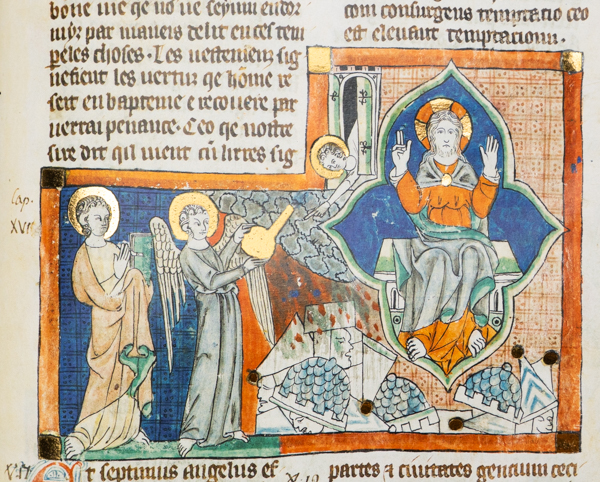 bone vie qe us ne seyum endor
mys par maueis delit en ces tem
peles choses. Les vestemenz sig
nefient les vertuz qe home re
seit en bapteme e recouere par
uerrai penance. Ceo qe nostre
sire dit qil vient cū lerres sig
com consurgens temptacio ceo
est eleuant temptacioun.
Cap.
XVI
Et septimus angelus ef
partes & ciuitates gentium ceci